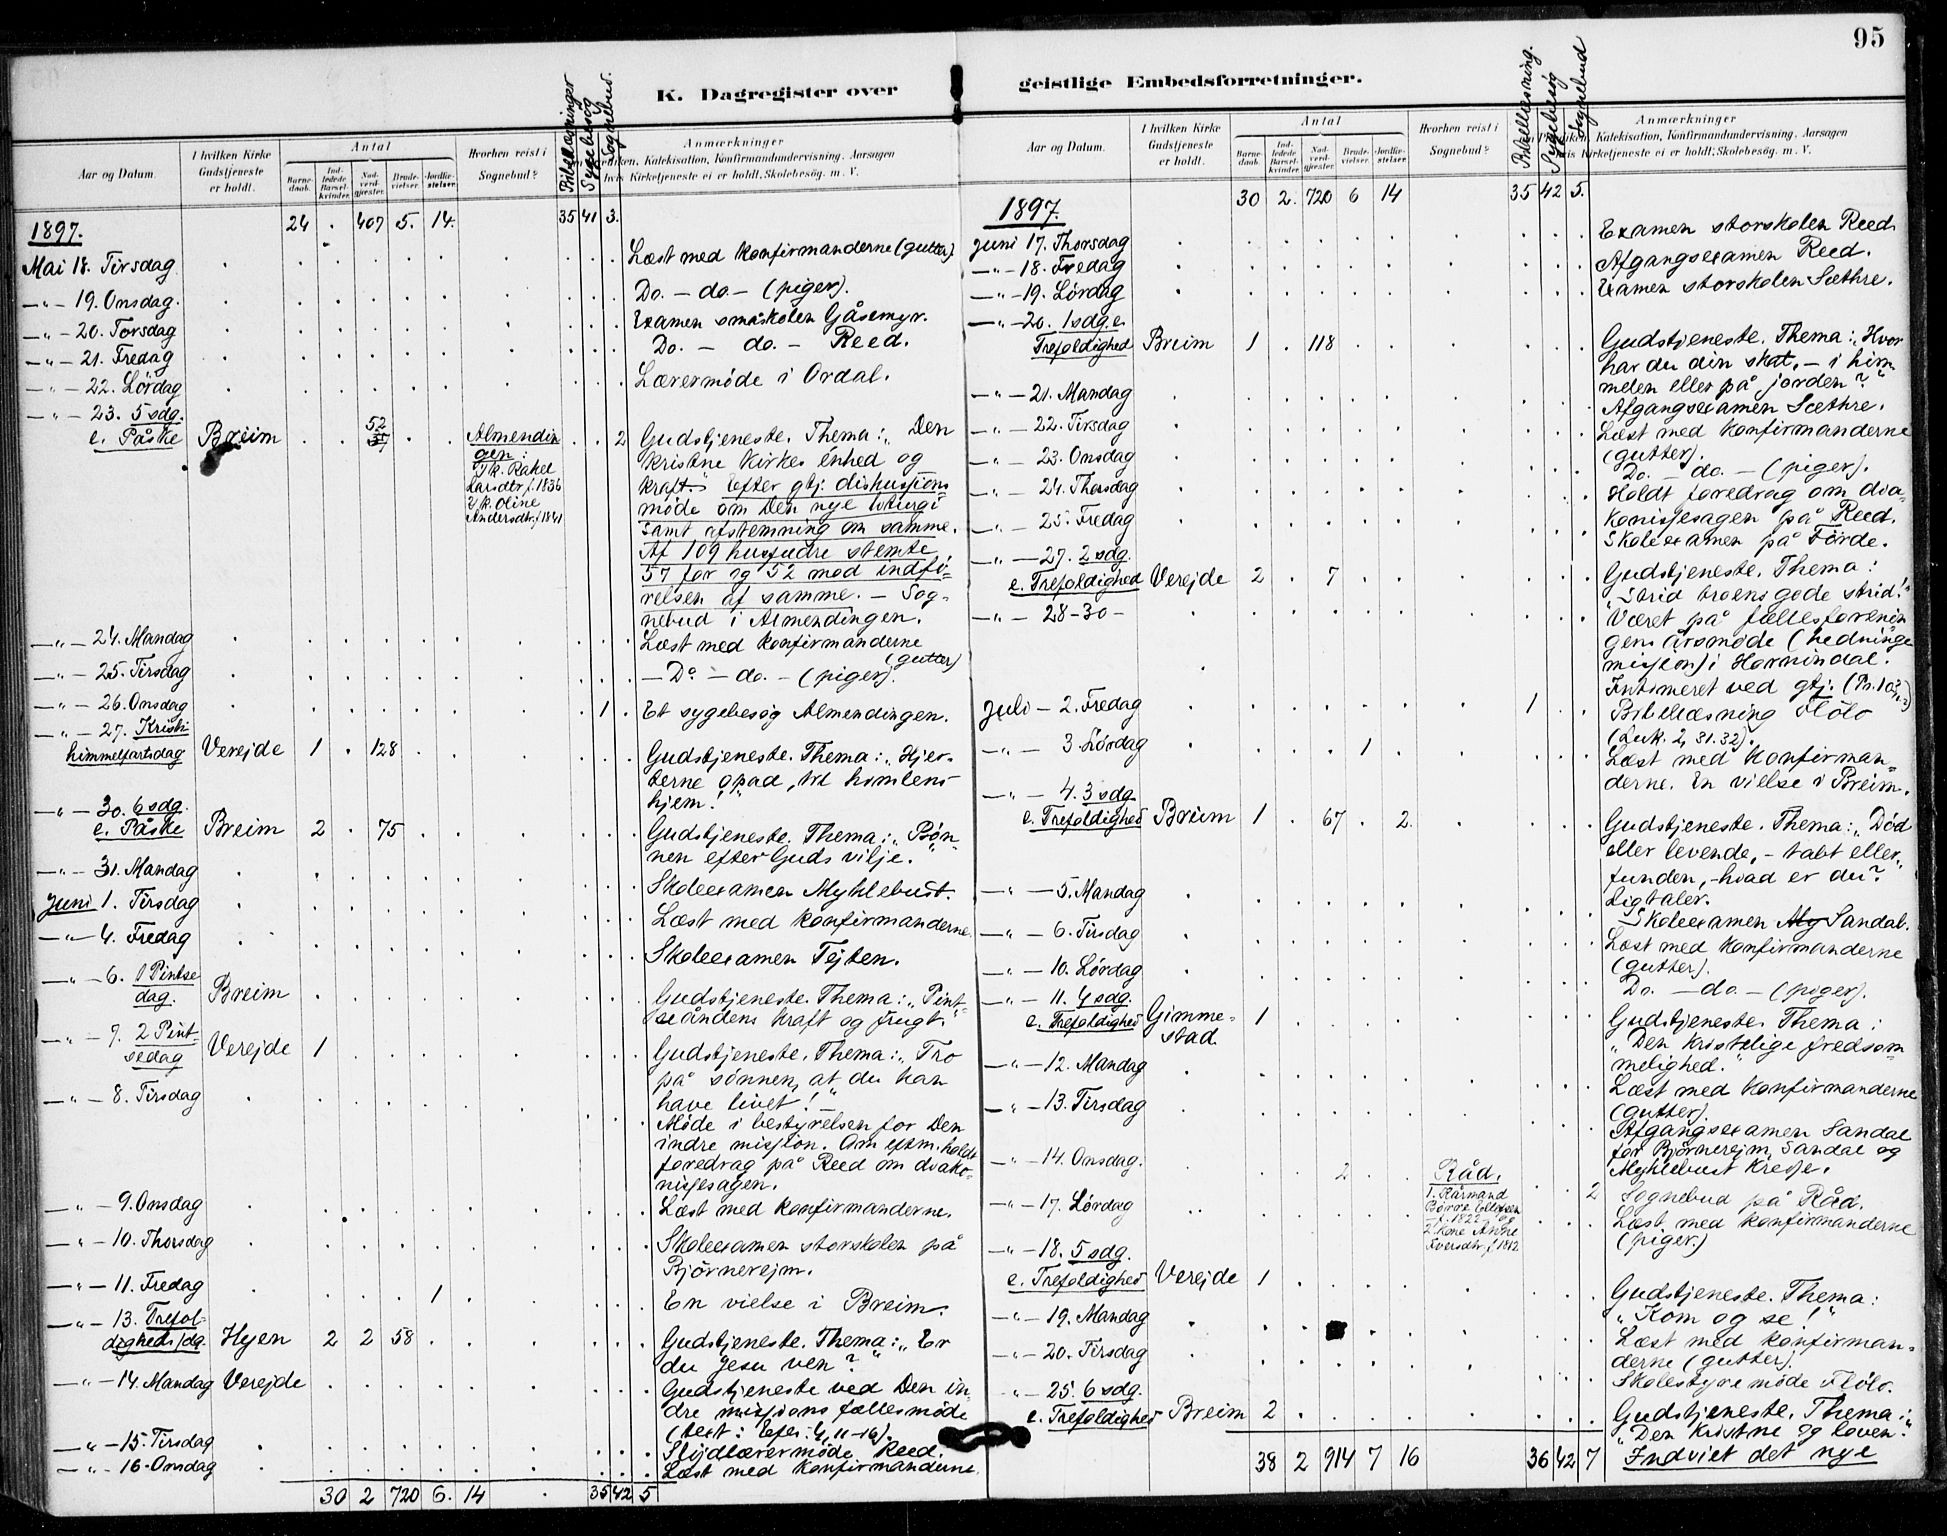 95
K. Dagregister over
geistlige Embedsforretninger.
Aar og Datum.
I hvilken Kirke Gudstjeneste er holdt.
Antal
Barnedaab.
Indledede Barselkvinder.
Nadverdgjester.
Brudevielser.
Jordfæstelser.
Hvorhen reist i Sognebud?
Bibellæsninger
Sygebesøg
Sognebud.
Anmærkninger
Katekisation, Konfirmandundervisning. Aarsagen
hvis Kirketjeneste ei er holdt, Skolebesøg. m. V.
1897. 24 . 407 5. 14. 35 41 3.
Mai 18. Tirsdag Læst med konfirmanderne (gutter)
—"— 19. Onsdag. Do. — do. — (piger).
—"— 20. Torsdag Examen småskolen Gåsemyr.
—"— 21. Fredag Do. — do. — Reed.
—"— 22. Lördag Lærermøde i Ordal.
—"— 23. 5 sdg.
e. Påske Breim . . 52 . . Almendin . . 2 Gudstjeneste. Thema: „Den
gen: kristne kirkes enhed og
1 k. Rakel kraft." Efter gtj. diskusjons
Larsdtr f. 1836 møde om Den nye liturgi
2 k. Oline samt afstemning om samme.
Andersdtr f 1841 Af 109 husfædre stemte
57 for og 52 mod indfø-
relsen af samme. — Sog-
nebud i Almendingen.
—"— 24. Mandag Læst med konfirmanderne
(gutter)
—"— 25. Tirsdag — Do. — do. — (piger).
—"— 26. Onsdag 1 . Et sygebesøg Almendingen.
—"— 27. Kristi
himmelfartsdag Verejde 1 . 128 Gudstjeneste. Thema: „Hjer-
terne opad, til himlens
hjem!"
—"— 30. 6 sdg.
e. Påske Breim 2 . 75 Gudstjeneste. Thema: „Bøn-
nen efter Guds vilje."
—"— 31. Mandag Skoleexamen Myklebust.
Juni 1. Tirsdag Læst med konfirmanderne.
—"— 4. Fredag Skoleexamen Fejten.
—"— 6. 1 Pintse
dag. Breim Gudstjeneste. Thema: „Pint-
seåndens kraft og frugt."
—"— 7. 2 Pint-
sedag Verejde 1 Gudstjeneste. Thema: „Tro
på sønnen, at du kan
have livet!" —
—"— 8. Tirsdag Møde i bestyrelsen for Den
indre misjion. Om eftm. holdt
foredrag på Reed om diako-
nisjesagen.
—"— 9. Onsdag Læst med konfirmanderne.
—"— 10. Thorsdag Skoleexamen storskolen på
Bjørnerejm.
—"— 11. Fredag 1 En vielse i Breim.
—"— 13. Trefol-
digheds/dg. Hyen 2 2 58 Gudstjeneste. Thema: „Er
du Jesu ven?"
—"— 14. Mandag Verejde Gudstjeneste ved Den in-
dre misjions fællesmøde
(text: Efes. 4, 11-16).
—"— 15. Tirsdag Sløjdlærermøde Reed.
—"— 16. Onsdag Læst med konfirmanderne.
30 2 720 6. 14 35 42 5
Aar og Datum.
I hvilken Kirke Gudstjeneste er holdt.
Antal
Barnedaab.
Indledede Barselkvinder.
Nadverdgjester.
Brudevielser.
Jordfæstelser.
Hvorhen reist i Sognebud?
Bibellæsning.
Sygebesøg
Sognebud
Anmærkninger
Katekisation, Konfirmandundervisning. Aarsagen
hvis Kirketjeneste ei er holdt, Skolebesøg. m. V.
1897. 30 2. 720 6 14 35 42 5.
Juni 17. Thorsdag Examen storskolen Reed.
—"— 18. Fredag Afgangsexamen Reed.
—"— 19. Lørdag Examen storskolen Sæthre.
—"— 20. 1 sdg. e.
Trefoldighed Breim 1 . 118 Gudstjeneste. Thema: „Hvor
har du din skat, — i him-
melen eller på jorden?"
—"— 21. Mandag Afgangsexamen Sæthre.
—"— 22. Tirsdag Læst med konfirmanderne
(gutter).
—"— 23. Onsdag Do. — do. — (piger).
—"— 24. Thorsdag Holdt foredrag om dia-
konisjesagen på Reed.
—"— 25. Fredag Skoleexamen på Förde.
—"— 27. 2 sdg.
e. Trefoldighed Verejde 2 . 7 Gudstjeneste. Thema:
„Strid troens gode strid!"
—"— 28-30 — Været på fællesforenin
gens årsmøde (hedninge
misjion) i Hornindal.
Intimeret ved gtj.
Juli — 2. Fredag 1 Bibellæsning Flölo
(Luk. 2, 31.32).
—"— 3. Lørdag 1 Læst med konfirman-
derne. En vielse i Breim.
—"— 4. 3 sdg.
e. Trefoldighed Breim 1 . 67 . 2. Gudstjeneste. Thema: „Død
eller levende, — tabt eller
funden, — hvad er du?"
Ligtaler.
—"— 5. Mandag Skoleexamen Sandal.
—"— 6. Tirsdag Læst med konfirmanderne
(gutter).
—"— 10. Lørdag Do. — do. — (piger).
—"— 11. 4 sdg.
e. Trefoldighed Gimme-
stad. 1 Gudstjeneste. Thema:
„Den kristelige fredsom-
melighed."
—"— 12. Mandag Læst med konfirmanderne
(gutter).
—"— 13. Tirsdag Afgangsexamen Sandal
for Bjørnerejm, Sandal og
Myklebust kredse.
—"— 14. Onsdag. 2 Råd. 2 Sognebud på Råd.
1. Kårmand
Börre Ellefsen
f. 1822. og
2 Kone Anne
Iversdtr. f. 1812
—"— 17. Lørdag Læst med konfirmanderne
(piger.)
—"— 18. 5 sdg.
e. Trefoldighed Verejde 1 Gudstjeneste. Thema:
„Kom og se!"
—"— 19. Mandag Læst med konfirman-
derne (gutter).
—"— 20. Tirsdag Skolestyremøde Flölo.
—"— 25. 6 sdg.
e. Trefoldighed Breim 2 Gudstjeneste. Thema:
„Den kristne og loven."
38 2 914 7 16 36 42 7 Indviet det nye